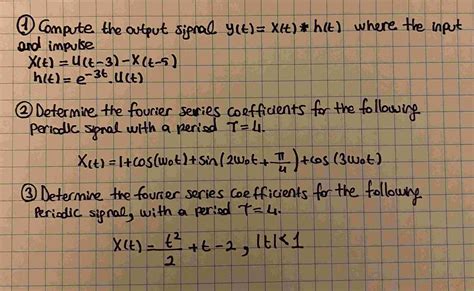 ① Compute the output signal y(t) = x(t) * h(t) where the input
and impulse
X(t) = U(t-3) - X(t-5)
h(t) = e^-3t . U(t)
② Determine the fourier series coefficients for the following
Periodic signal with a period T=4.
X(t) = 1 + cos(ω₀t) + sin(2ω₀t + π/4) + cos(3ω₀t)
③ Determine the fourier series coefficients for the following
Periodic signal, with a period T=4.
X(t) = t²/2 + t - 2 , |t| < 1